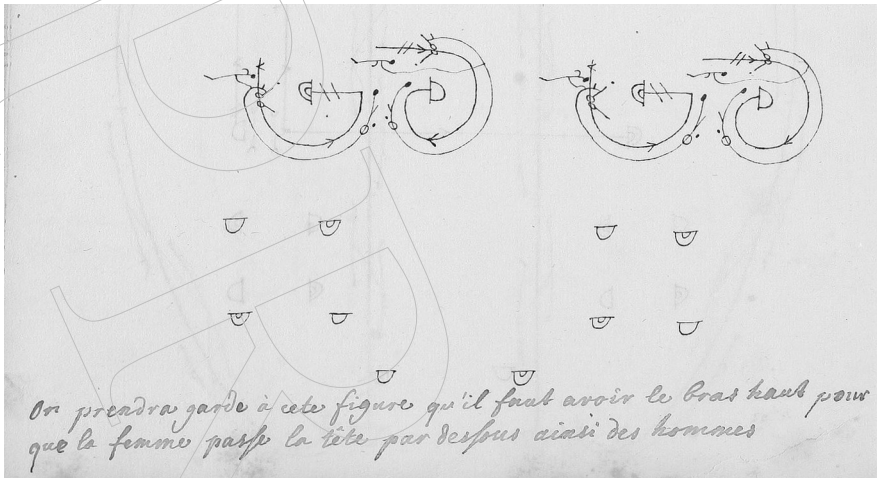 On prendra garde à cete figure qu'il faut avoir le bras haut pour
que la femme passe la tête par dessous ainsi des hommes